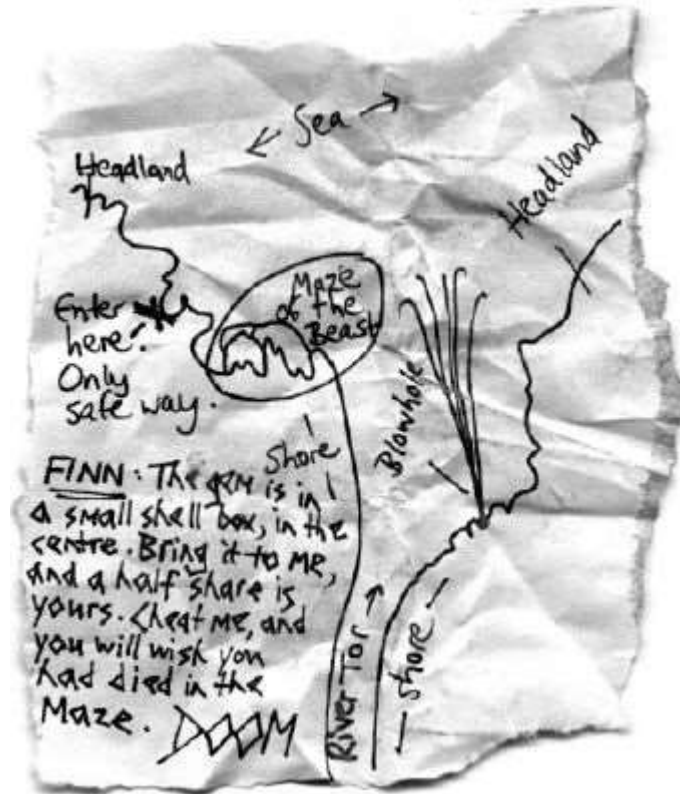 Sea
Headland
Headland
Maze
of the
Beast
Enter
here!
Only
safe way.
Blowhole
Shore
FINN: The gem is in
a small shell box, in the
centre. Bring it to me,
and a half share is
yours. Cheat me, and
you will wish you
had died in the
Maze. DOOM
River Tor
Shore